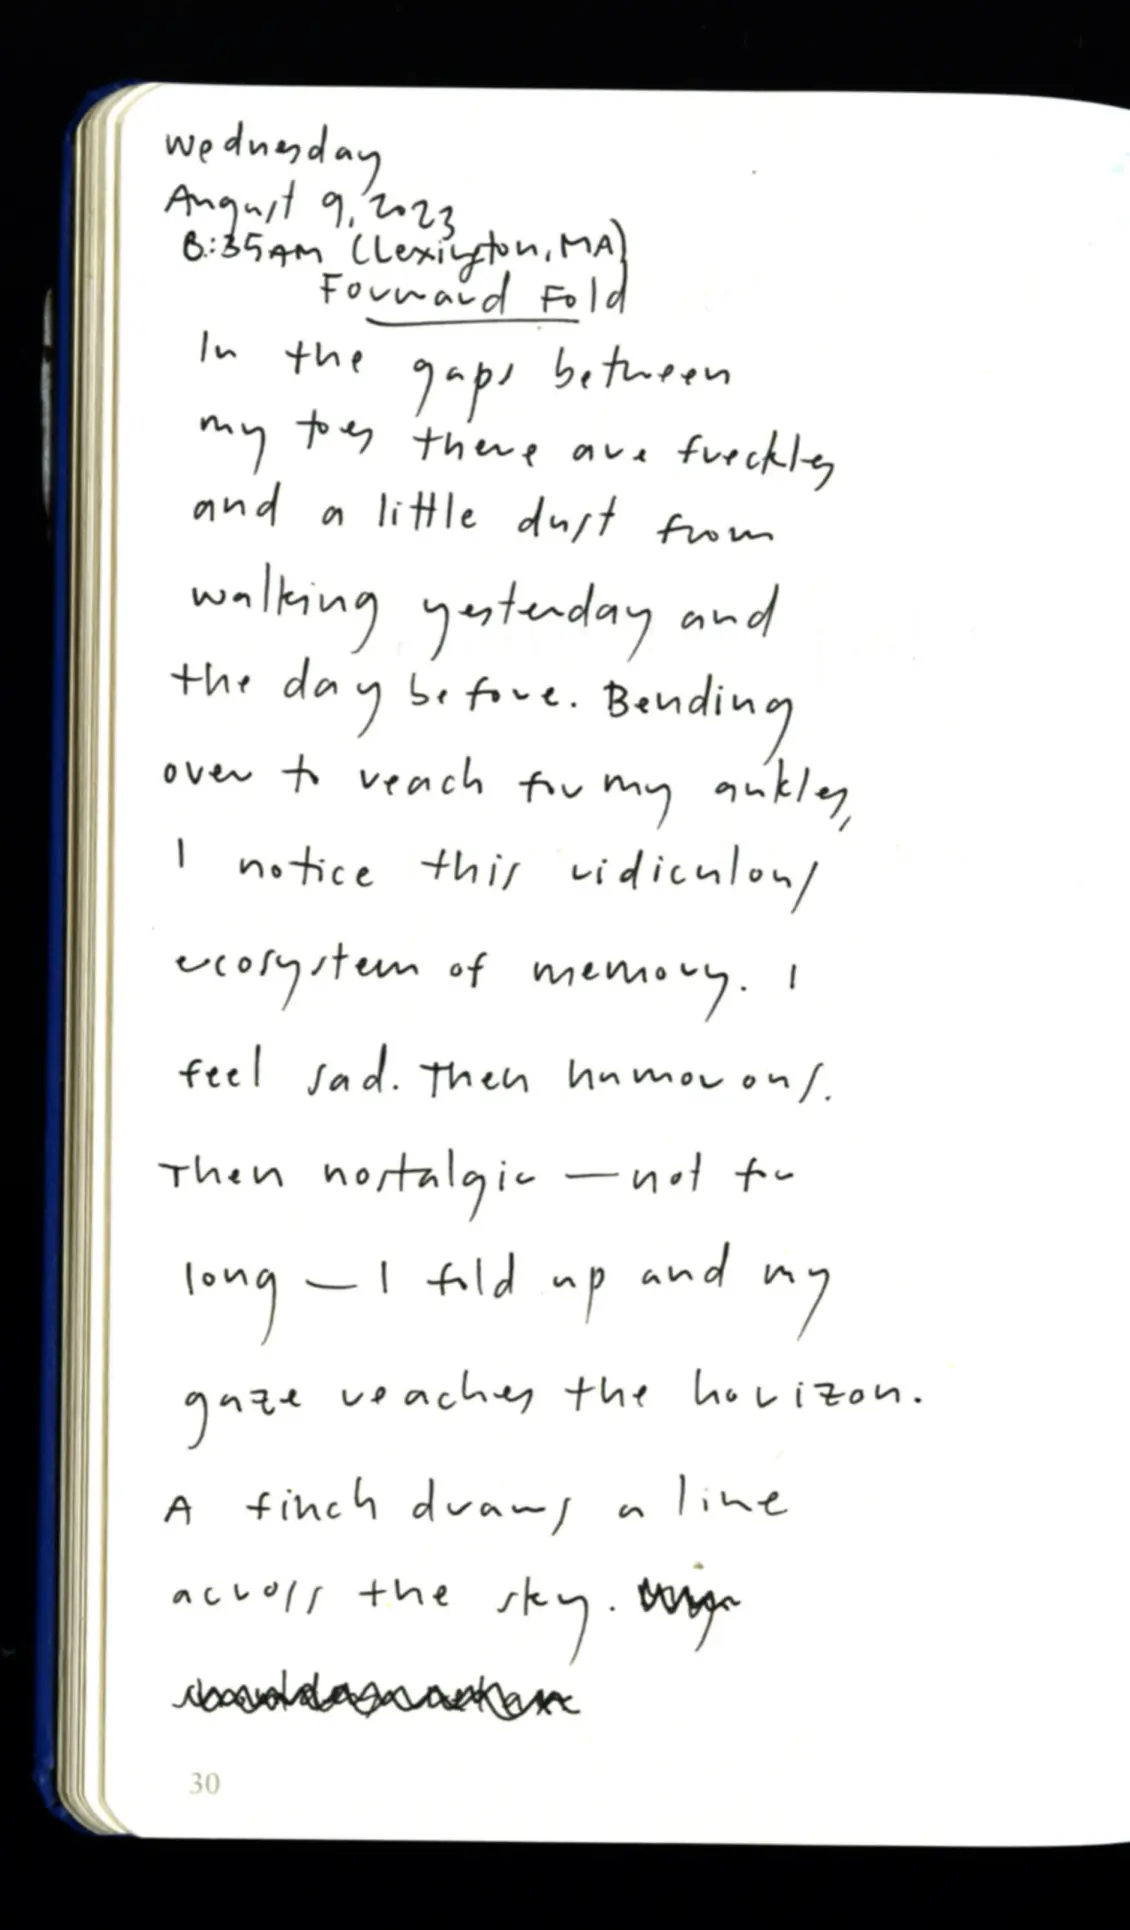 Wednesday
August 9, 2023
8:35AM (Lexington, MA)
Forward Fold
In the gaps between
my toes there are freckles
and a little dust from
walking yesterday and
the day before. Bending
over to reach for my ankles,
I notice this ridiculous
ecosystem of memory. I
feel sad. Then humorous.
Then nostalgic — not for
long — I fold up and my
gaze reaches the horizon.
A finch draws a line
across the sky.
30